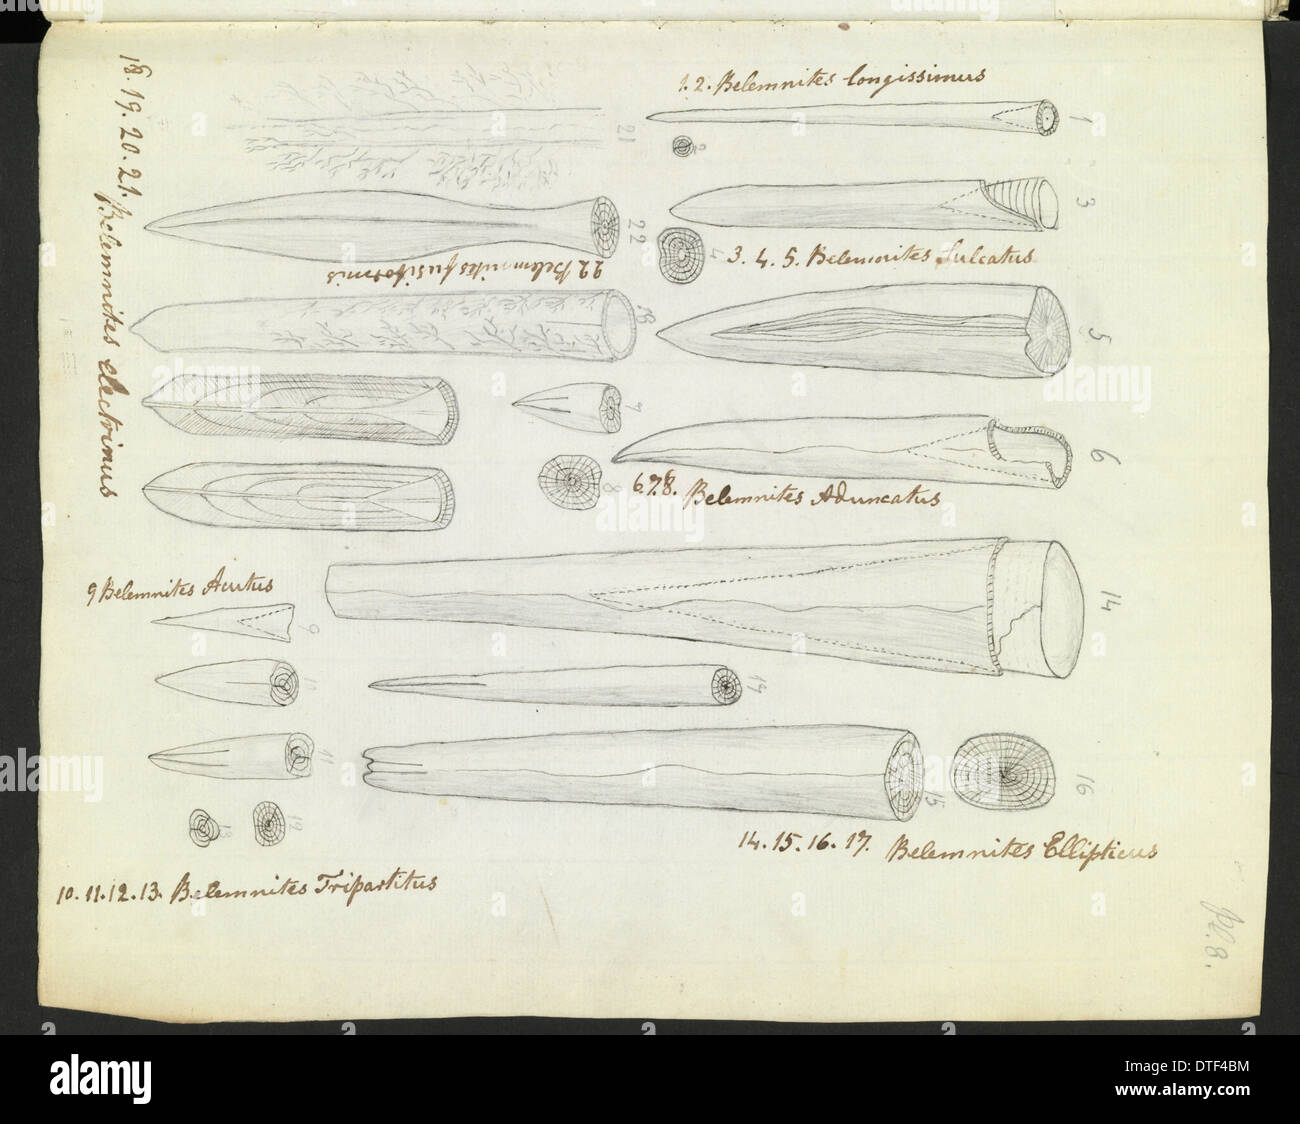 1.2. Belemnites longissimus
1
2
3
3. 4. 5. Belemnites Sulcatus
4
5
6
7
8
6.7.8. Belemnites Aduncatus
18. 19. 20. 21. Belemnites electrinus
21
22
22. Belemnites fusiformis
18
9 Belemnites Acutus
9
10
11
12
13
10. 11. 12. 13. Belemnites Tripartitus
14
17
15
16
14. 15. 16. 17. Belemnites Ellipticus
pl. 8.
alamy
DTF4BM
www.alamy.com